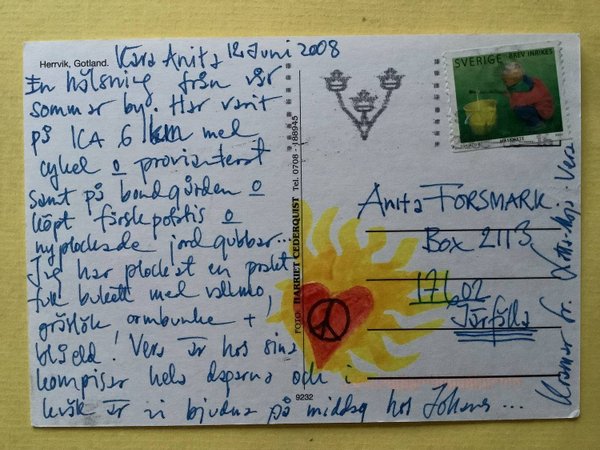 Herrvik, Gotland.
Kära Anita 12 Juni 2008
En hälsning från vår
sommar by. Har varit
på ICA 6 km med
cykel o provianterat
samt på bondgården o
köpt färskpotatis o
nyplockade jordgubbar...
Jag har plockat en prakt
full bukett med vallmo,
gräslök ormbunke +
blåeld! Vera är hos sina
kompisar hela dagarna och i
kväll är vi bjudna på middag hos Johans...
FOTO: HARRIET CEDERQUIST Tel. 0708 - 188945
9232
SVERIGE BREV INRIKES
Anita FORSMARK
Box 2113
17102
Järfälla
Kramar fr. Lotta-Maja - Vera